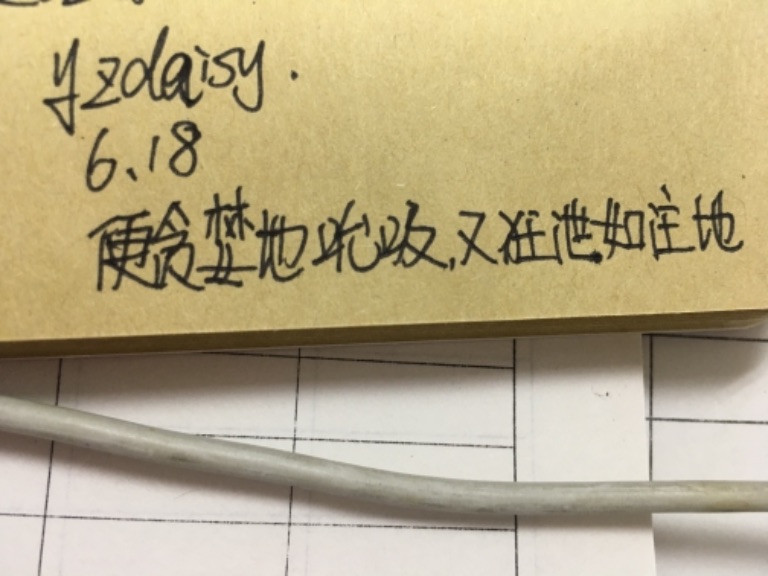 yzdaisy.
6.18
便贪婪地吮吸,又狂泄如注地